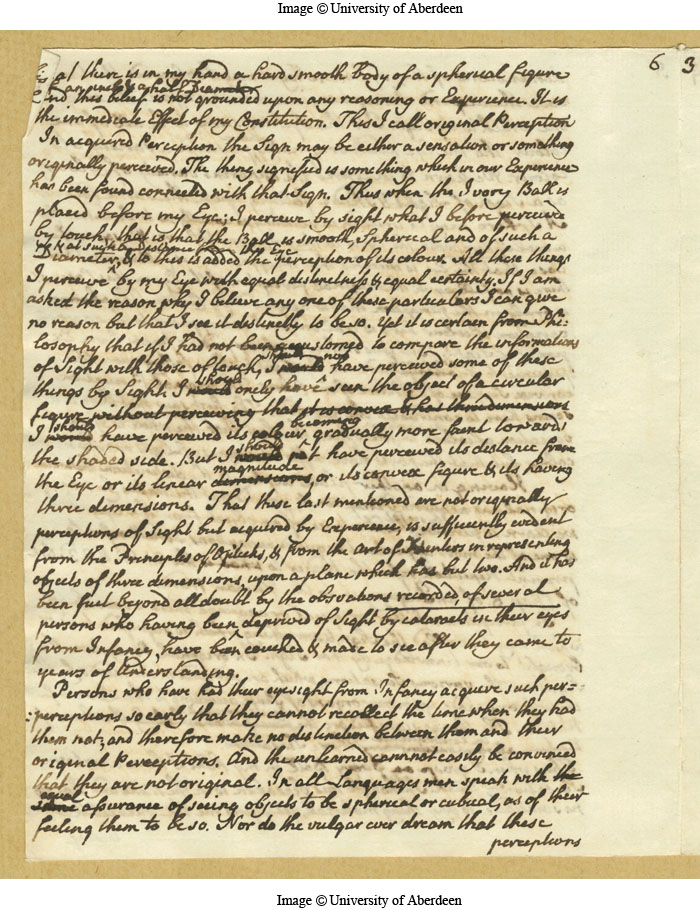 Image © University of Aberdeen
6 3
that there is in my hand a hard smooth body of a spherical figure
& an inch & a half Diameter
And this belief is not grounded upon any reasoning or Experience. It is
the immediate Effect of my Constitution. This I call original Perception
In acquired Perception the Sign may be either a sensation or something
originally perceived. The thing signified is something which in our Experience
has been found connected with that Sign. Thus when the Ivory Ball is
placed before my Eye; I perceive by sight what I before perceived
by touch, that is that the Ball is smooth, Spherical and of such a
& at such a distance from the Eye
Diameter, & to this is added the perception of its colour. All these things
I perceive by my Eye with equal distinctness & equal certainty. If I am
asked the reason why I believe any one of these particulars I can give
no reason but that I see it distinctly to be so. Yet it is certain from Phi-
losophy that if I had not been accustomed to compare the informations
should not
of Sight with those of touch, I would have perceived some of these
should
things by Sight. I would onely have seen the object of a circular
figure without perceiving that it is convex & has three dimensions
should becoming
I would have perceived its colour gradually more faint towards
should
the shaded side. But I would not have perceived its distance from
magnitude
the Eye or its linear dimensions, or its convex figure & its having
three dimensions. That these last mentioned are not originally
perceptions of Sight but acquired by Experience, is sufficiently evident
from the Principles of Opticks, & from the art of Painters in representing
objects of three dimensions, upon a plane which has but two. And it has
been put beyond all doubt by the obsvations recorded, of several
persons who having been deprived of Sight by cataracts in their eyes
from Infancy, have been couched & made to see after they came to
years of Understanding.
Persons who have had their eyesight from Infancy acquire such per=
:perceptions so early that they cannot recollect the time when they had
them not, and therefore make no distinction between them and their
original Perceptions. And the unlearned cannnot easily be convinced
that they are not original. In all Languages men speak with the
equal
same assurance of seing objects to be spherical or cubical, as of their
feeling them to be so. Nor do the vulgar ever dream that these
perceptions
Image © University of Aberdeen